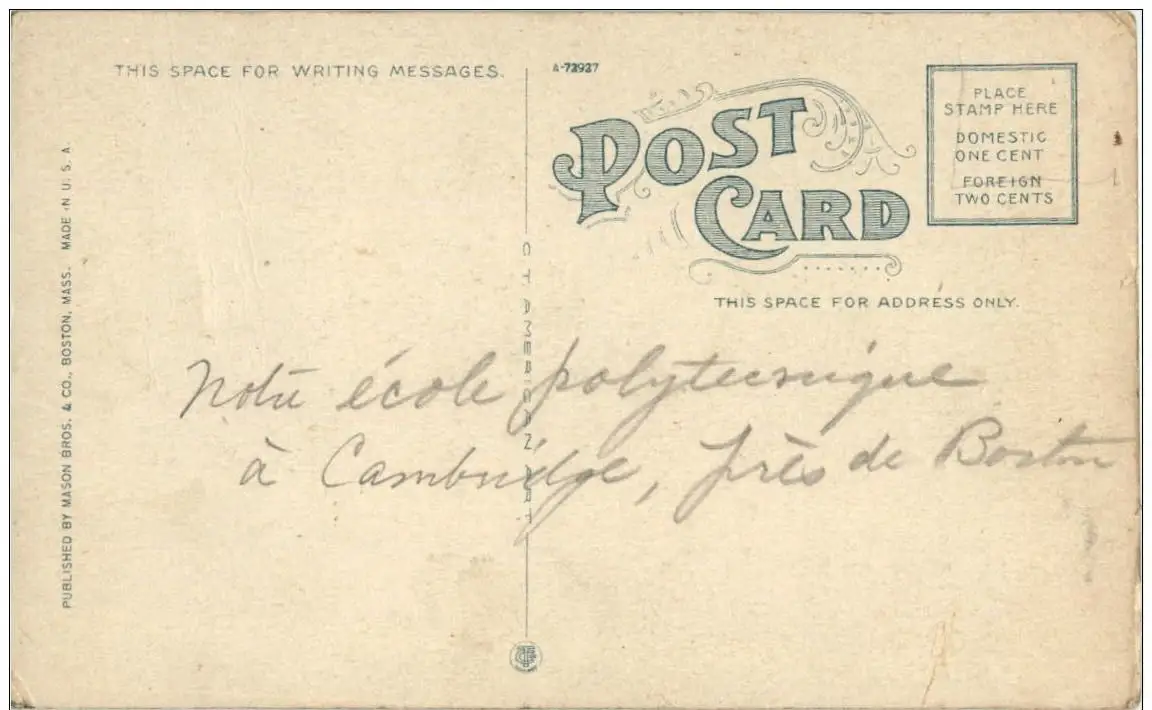 THIS SPACE FOR WRITING MESSAGES.
A-72927
POST
CARD
PLACE
STAMP HERE
DOMESTIC
ONE CENT
FOREIGN
TWO CENTS
THIS SPACE FOR ADDRESS ONLY.
PUBLISHED BY MASON BROS. & CO., BOSTON, MASS. MADE IN U. S. A.
C T AMERICAN ART
Notre école polytecnique
à Cambridge, près de Boston